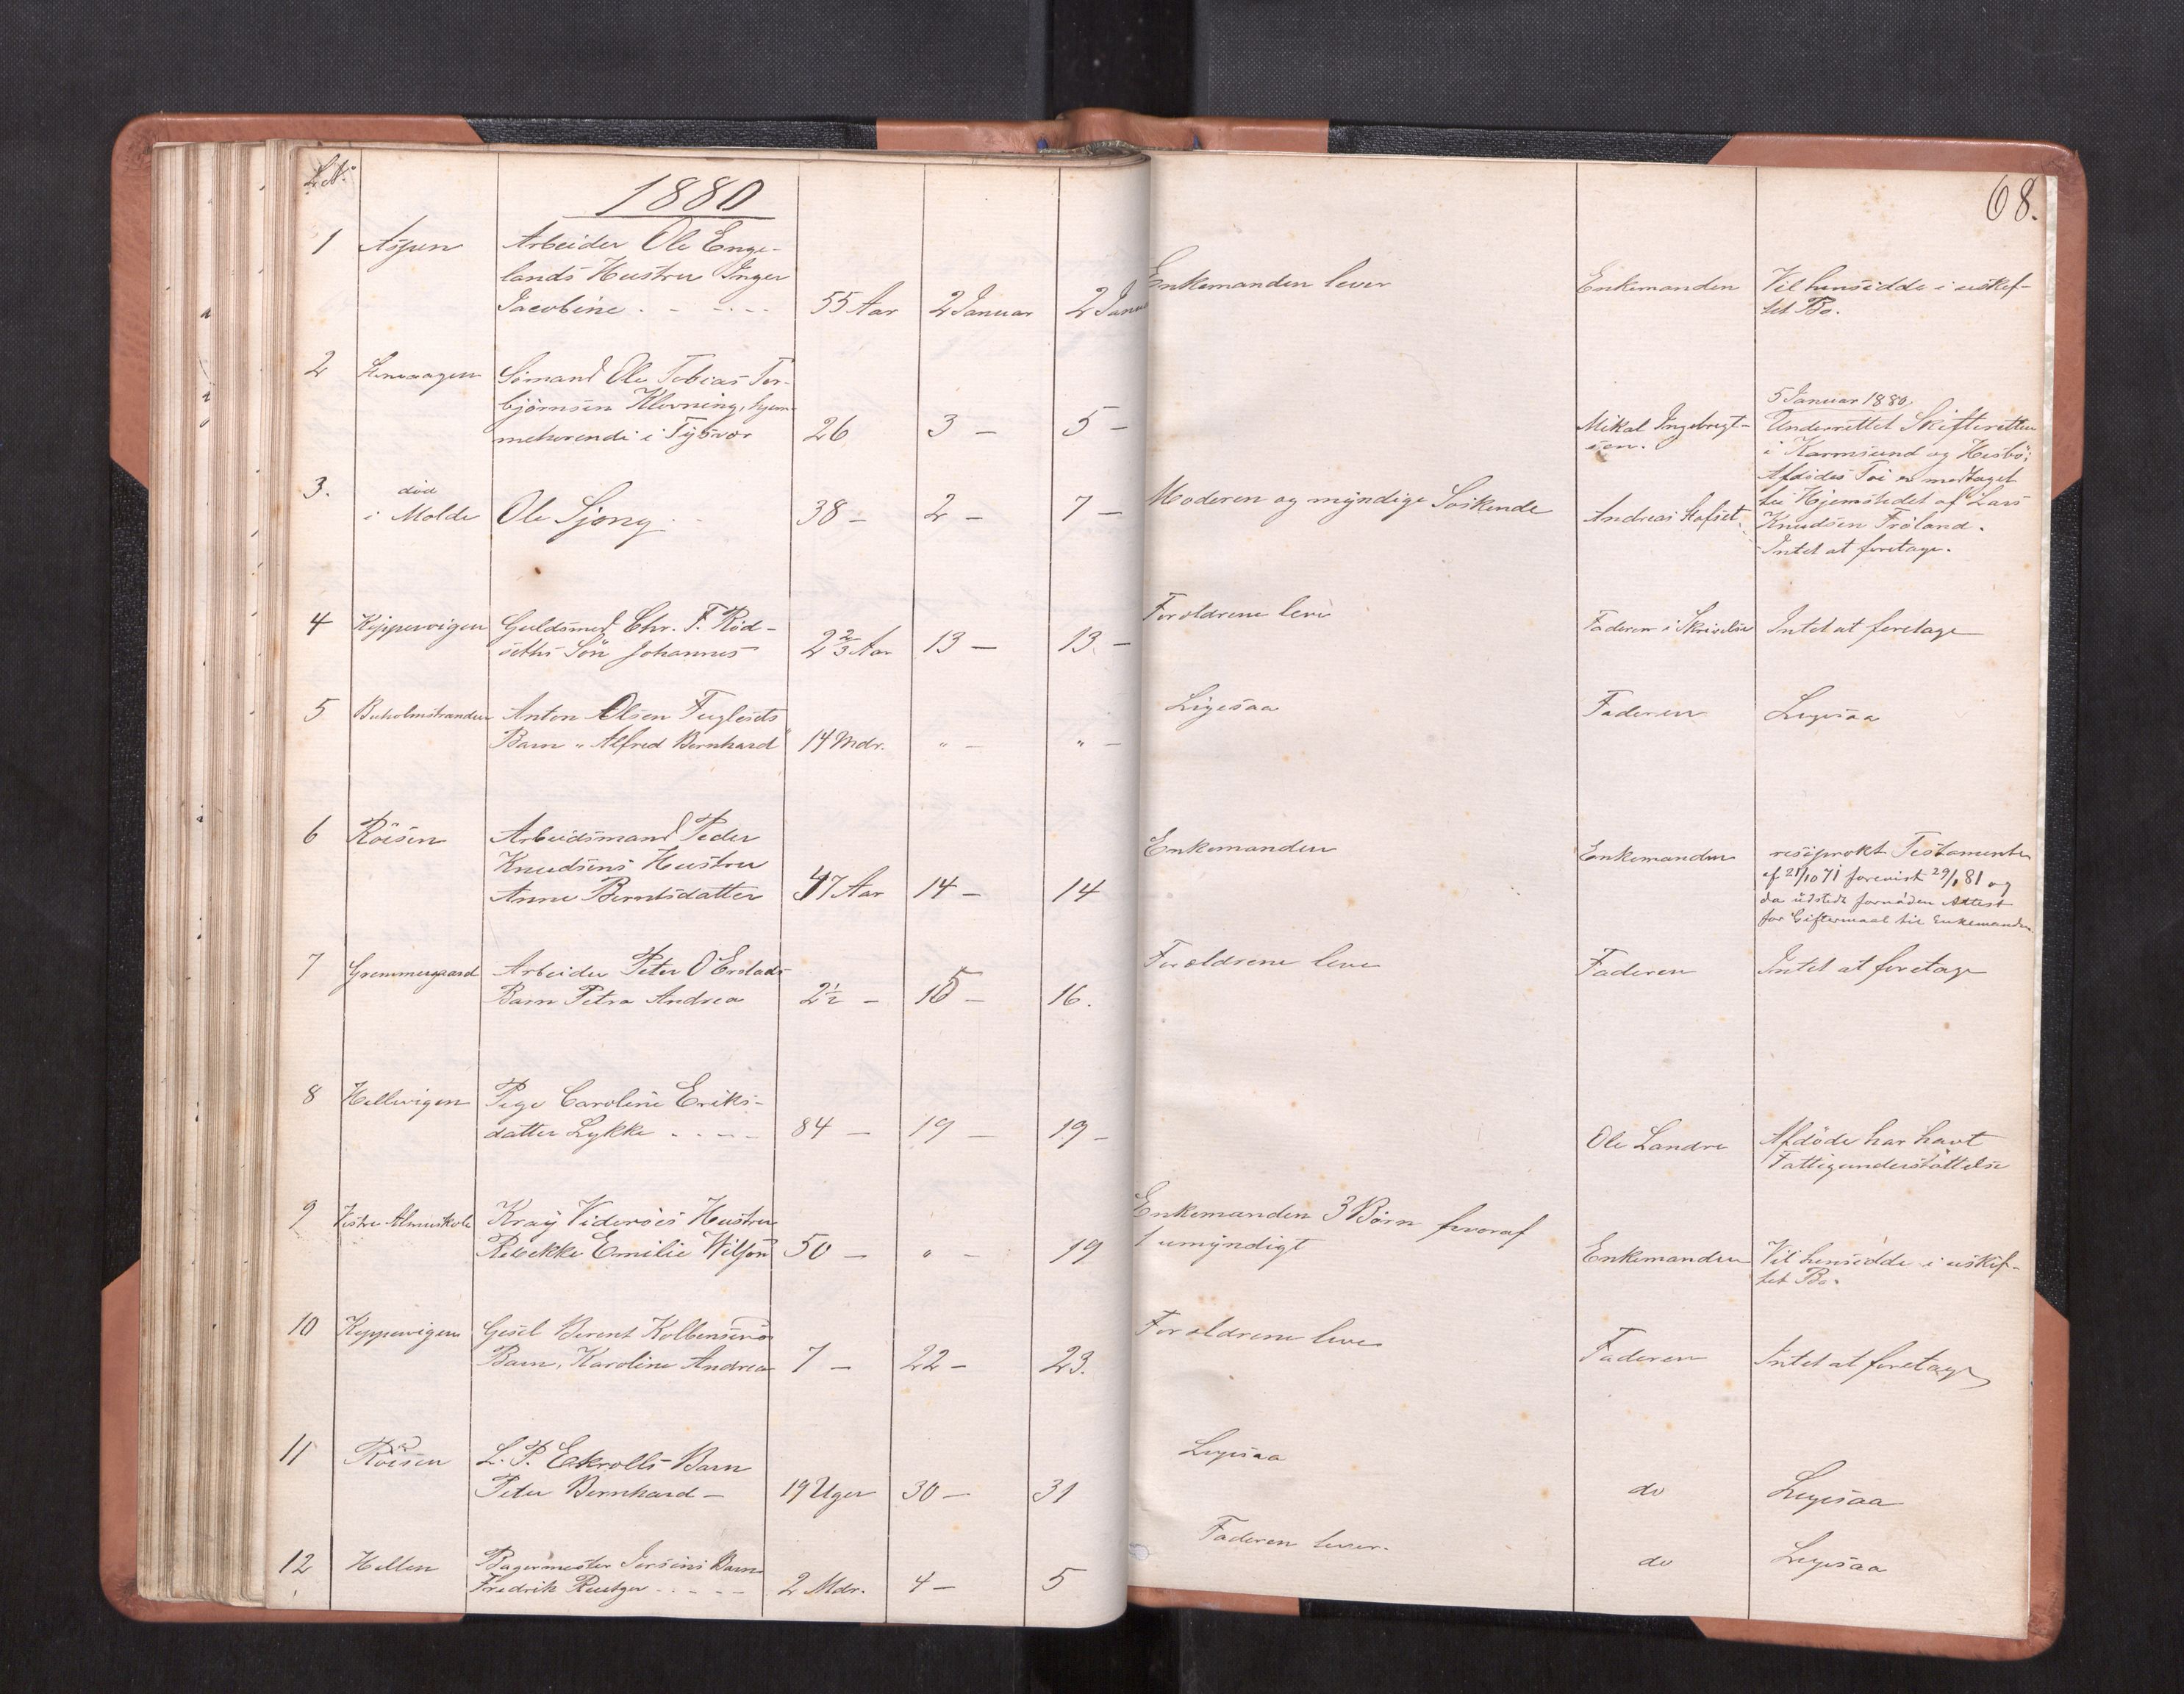 L. N.
1880
68.
1 Aspen Arbeider Ole Enge-
lands Hustru Inger
Jacobine . - - . - . - 55 Aar 2 Januar 2 Janu
Enkemanden lever Enkemanden Vil hensidde i uskif-
tet Bo.
2 Sömand Ole Tobias Tor-
björnsen Klovning, hjem-
mehørende i Tysvær 26 3 — 5 —
Mikal Ingebrigt-
sen.
5 Januar 1880
Underrettet Skifteretten
i Karmsund og Hesbö;
Afdödes Töi er modtaget
til Hjemstedet af Lars
Knudsen Fröland.
3. död
i Molde Ole Sjong - - 38 — 2 — 7 —
Moderen og myndige Söskende Andreas Hofset
Intet at foretage.
4 Kippervigen Guldsmed Chr. F. Röd-
seths Sön Johannes 2 2/3 Aar 13 — 13 —
Forældrene leve Faderen i Skrivelse Intet at foretage
5 Buholmstranden Anton Olsen Fuglesets
Barn "Alfred Bernhard" 14 Mdr. " — " —
Ligesaa Faderen Ligesaa
6 Röisen Arbeidsmand Peder
Knudsens Hustru
Anne Berntsdatter 47 Aar 14 — 14
Enkemanden Enkemanden resiprokt Testamente
af 21/10 71 forevist 29/1 81 og
da udstedt fornöden Attest
for Giftermaal til Enkemanden
7 Arbeider Peter O Erstads
Barn Petra Andrea 2½ — 15 — 16.
Forældrene leve Faderen Intet at foretage
8 Hellevigen Pige Caroline Eriks-
datter Lykke - - - - 84 — 19 — 19 —
Ole Landre Afdöde har havt
Fattigunderstöttelse
9 Vestre Almueskole Kray Viderøes Hustru
Rebekke Emilie Wilson 50 — " — 19
Enkemanden 3 Børn hvoraf
1 umyndigt Enkemanden Vil hensidde i uskif-
tet Bo.
10 Kippervigen Gesel Berent Kolbensens
Barn, Karoline Andrea 7 — 22 — 23.
Forældrene leve Faderen Intet at foretage
11 Röisen L. P. Eikrolls Barn
Peter Bernhard — 19 Uger 30 — 31
Ligesaa do Ligesaa
12 Hellen Bagermester Iversens Barn
Fredrik Rutger - - - - 2 Mdr. 4 — 5
Faderen lever. do Ligesaa